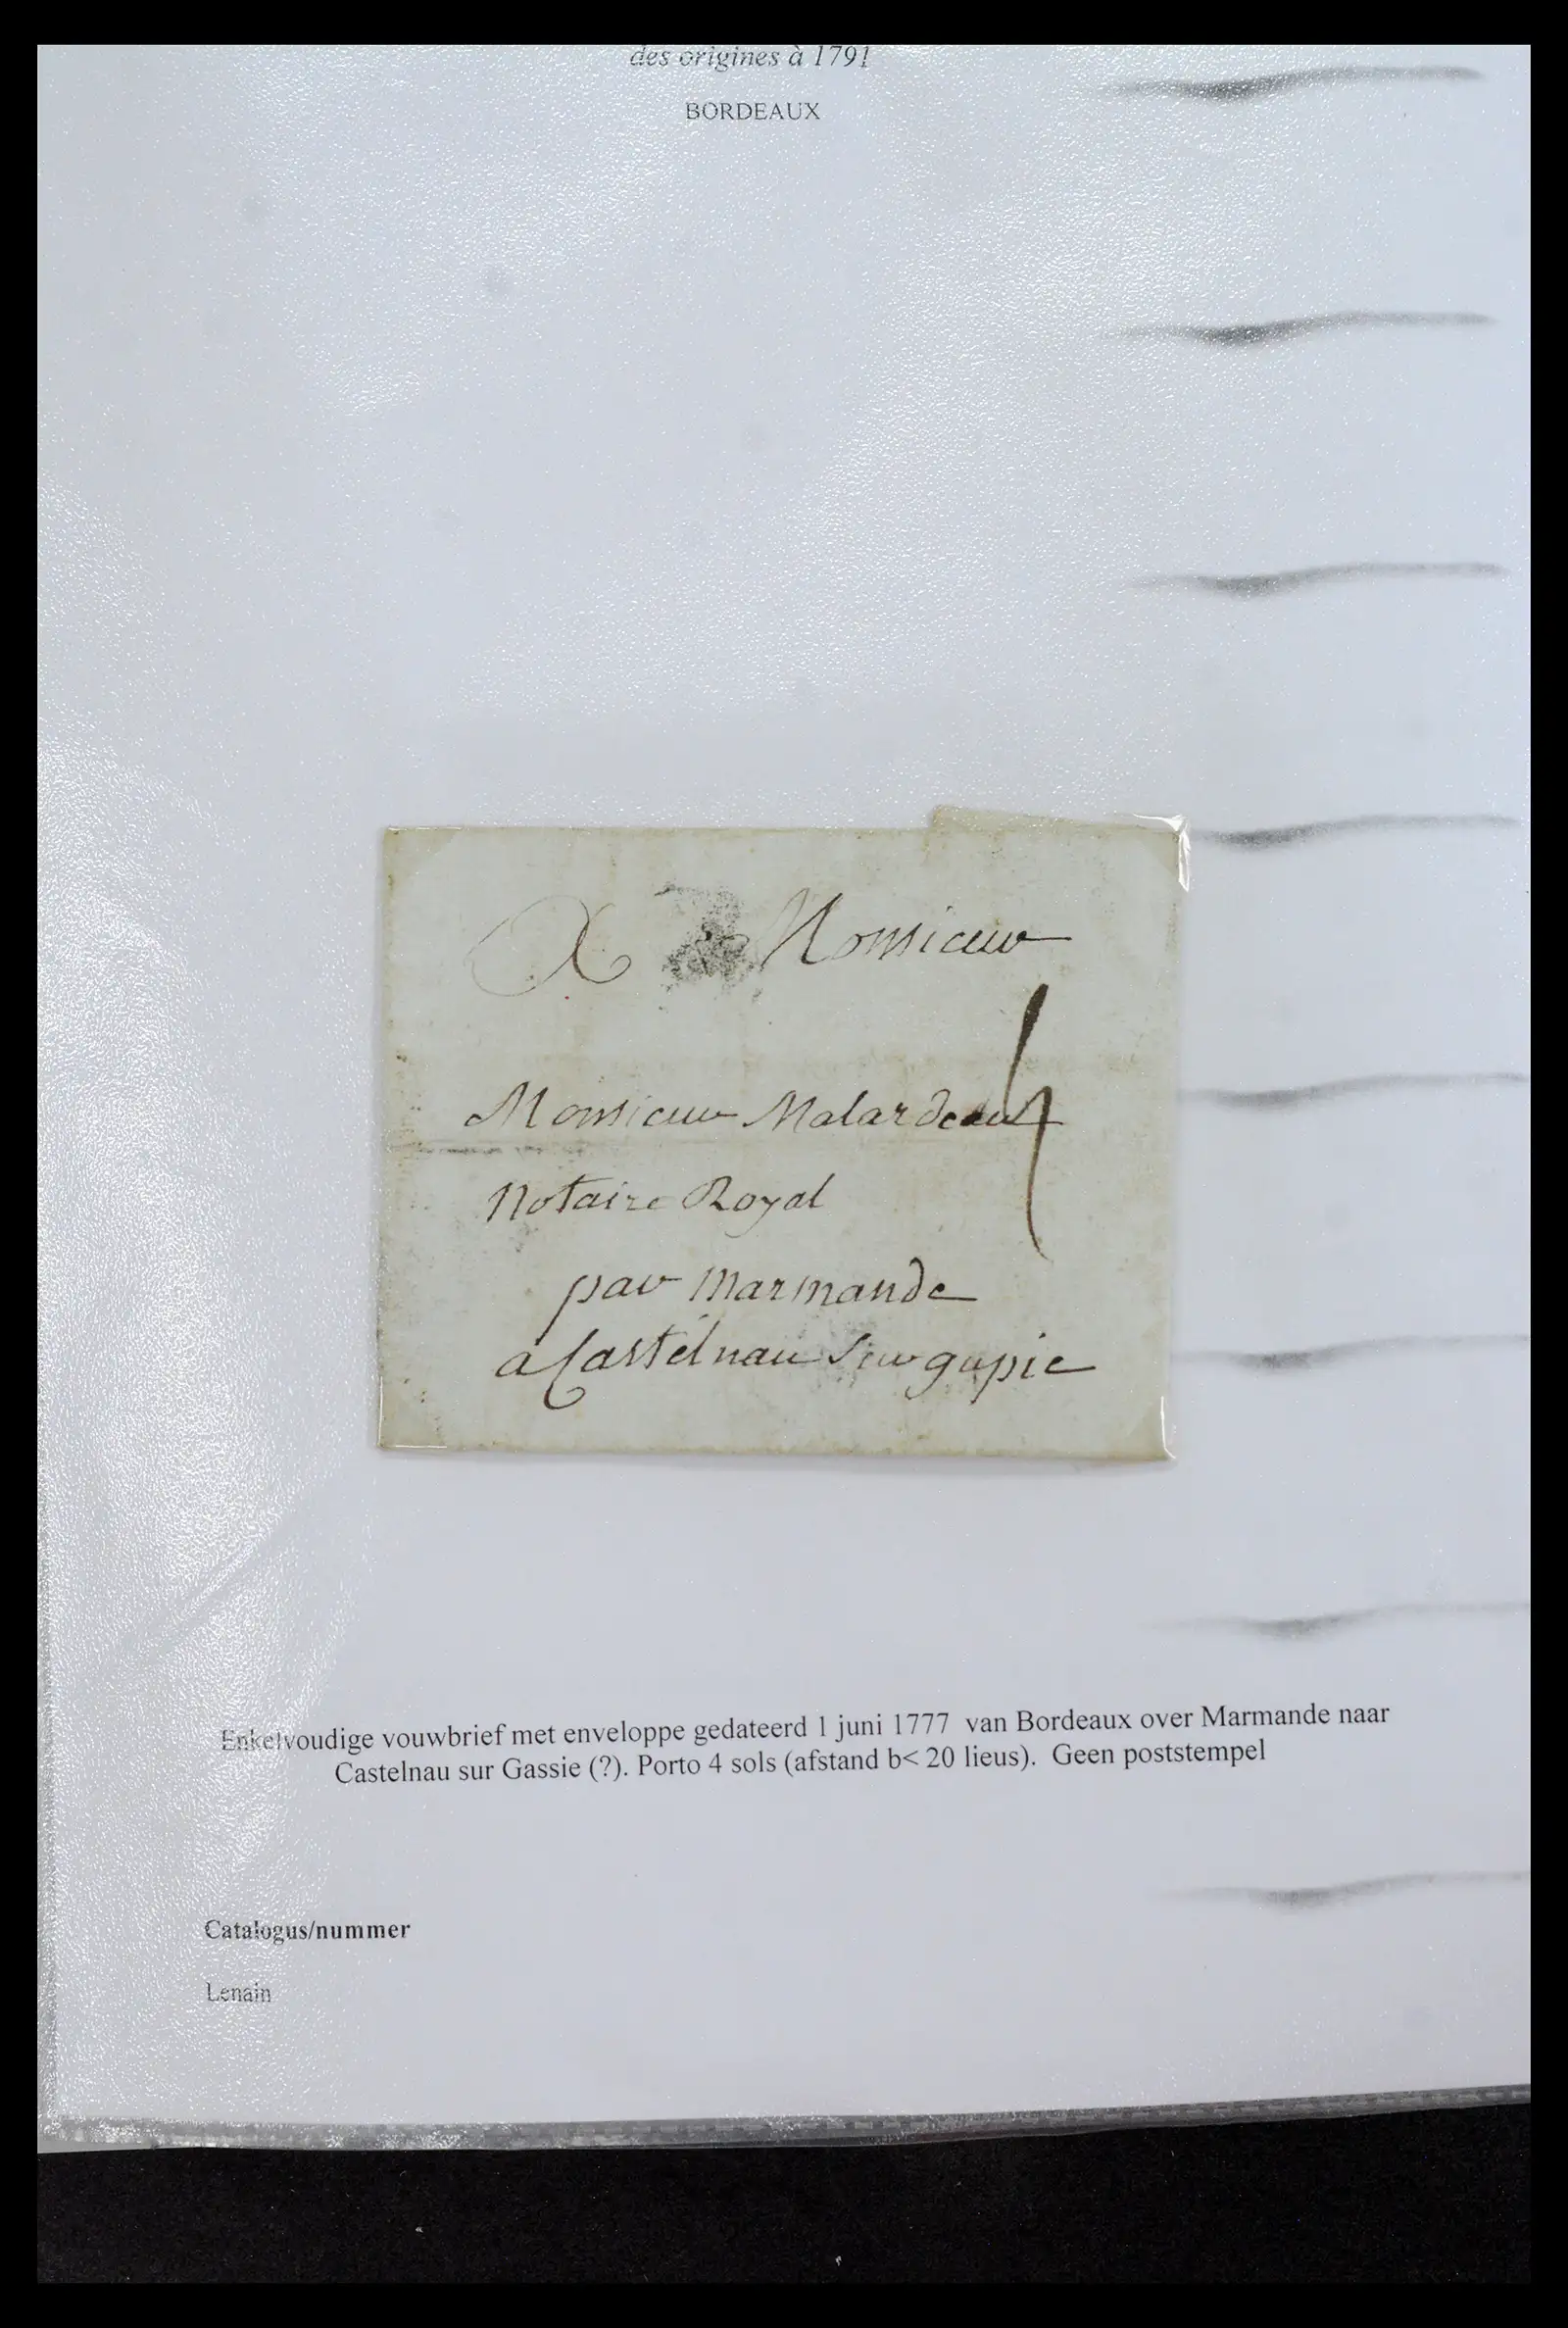 des origines à 1791
BORDEAUX
A Monsieur
4
Monsieur Malardeau
Notaire Royal
par Marmande
a Castelnau Sur gupie
Enkelvoudige vouwbrief met enveloppe gedateerd 1 juni 1777 van Bordeaux over Marmande naar
Castelnau sur Gassie (?). Porto 4 sols (afstand b< 20 lieus). Geen poststempel
Catalogus/nummer
Lenain